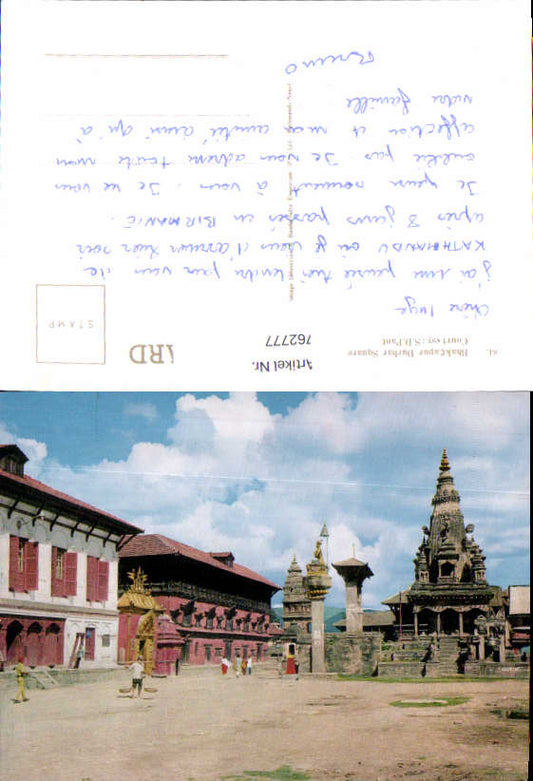 61. Bhaktapur Durbar Square
Courtsey : S.D.Pant
Artikel Nr.
762777
STAMP
chère Inge
j'ai une pensée très tendre pour vous de
KATHMANDU où je viens d'arriver hier soir
après 8 jours passés en BIRMANIE.
Je pense souvent à vous. Je ne vous
oublie pas. Je vous adresse toute mon
affection et mon amitié ainsi qu'à
votre famille
Bruno